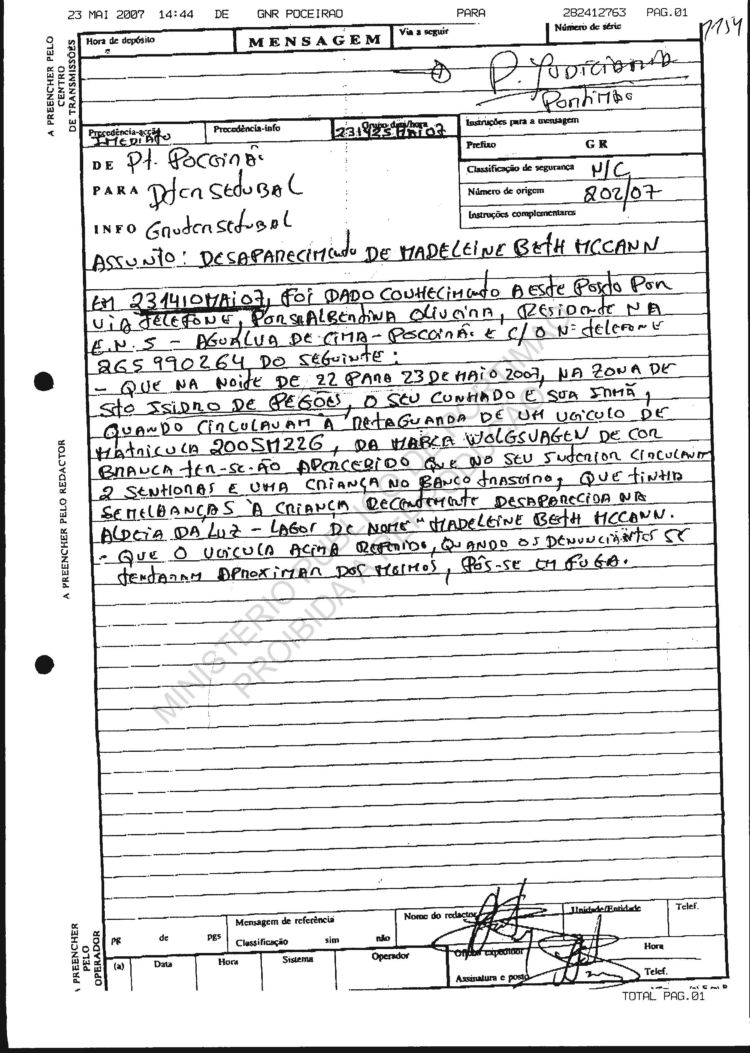 23 MAI 2007 14:44 DE GNR POCEIRAO PARA 282412763 PAG.01
1154
A PREENCHER PELO CENTRO DE TRANSMISSÕES
Hora de depósito
MENSAGEM
Via a seguir
Número de série
P. JUDICIÁRIA
PORTIMÃO
Precedência-acção
IMEDIATO
Precedência-info
Grupo data/hora
231425MAI07
Instruções para a mensagem
Prefixo GR
Classificação de segurança N/C
Número de origem 802/07
Instruções complementares
DE Pt. POCEIRÃO
PARA DTER SETUBAL
INFO GRUTER SETUBAL
ASSUNTO: DESAPARECIMENTO DE MADELEINE BETH MCCANN
A PREENCHER PELO REDACTOR
EM 231410MAI07, FOI DADO CONHECIMENTO A ESTE POSTO POR
VIA TELEFONE, POR SRª ALBERTINA OLIVEIRA, RESIDENTE NA
E.N. 5 - AGUALVA DE CIMA - POCEIRÃO E C/O Nº TELEFONE
265990264 DO SEGUINTE:
- QUE NA NOITE DE 22 PARA 23 DE MAIO 2007, NA ZONA DE
STO ISIDRO DE PEGÕES, O SEU CUNHADO E SUA IRMÃ,
QUANDO CIRCULAVAM À RETAGUARDA DE UM VEICULO DE
MATRICULA 2005MZZG, DA MARCA WOLGSVAGEN DE COR
BRANCA TER-SE-ÃO APERCEBIDO QUE NO SEU INTERIOR CIRCULAVAM
2 SENHORAS E UMA CRIANÇA NO BANCO TRASEIRO, QUE TINHA
SEMELHANÇAS À CRIANÇA RECENTEMENTE DESAPARECIDA NA
ALDEIA DA LUZ - LAGOS DE NOME "MADELEINE BETH MCCANN.
- QUE O VEICULO ACIMA REFERIDO, QUANDO OS DENUNCIANTES SE
TENTARAM APROXIMAR DOS MESMOS, PÔS-SE EM FUGA.
MINISTÉRIO PÚBLICO DE PORTIMÃO
PROIBIDA A REPRODUÇÃO
A PREENCHER PELO OPERADOR
pg de pgs
Mensagem de referência
Classificação sim não
Nome do redactor
Unidade/Entidade
Telef.
(a) Data Hora Sistema Operador
Oficial expedidor
Hora
Assinatura e posto
Telef.
TOTAL PAG.01